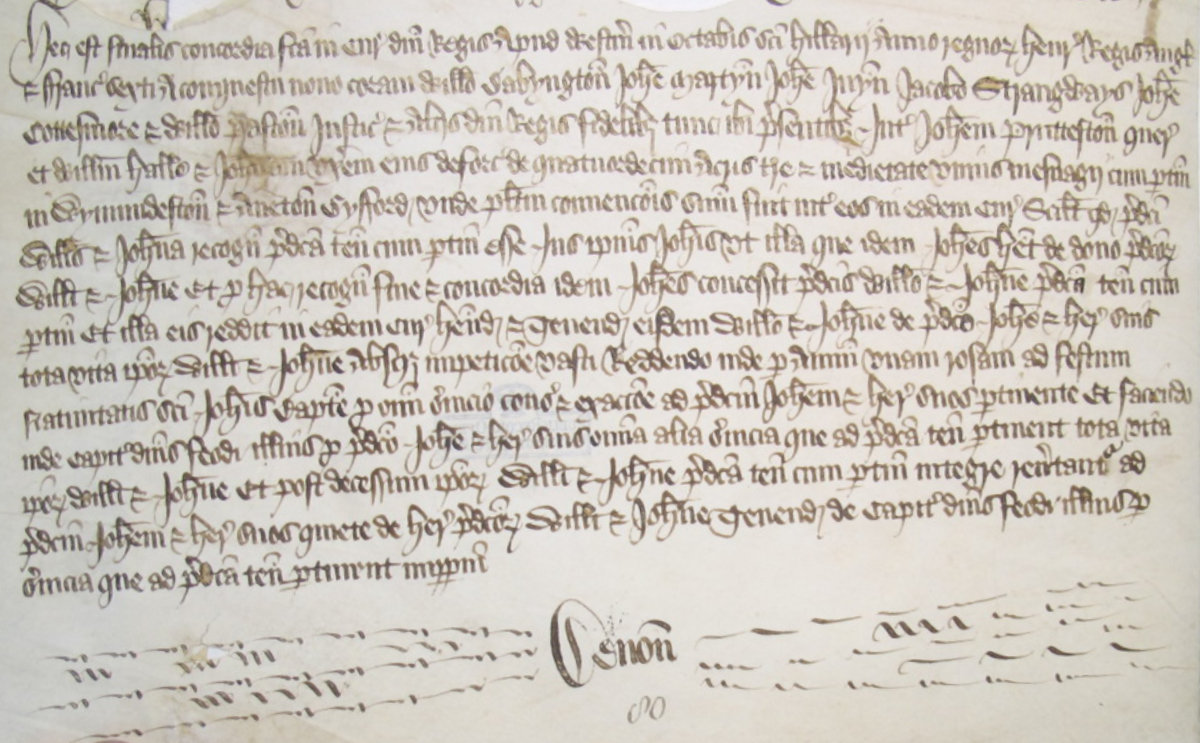 Hec est finalis concordia fca in Cur dni Regis apud Westm in Octabis sci Hillarii Anno regnor Henr Regis Angl
& Franc sexti a conquestu nono coram Willo Babyngton Johe Martyn Johe Juyn Jacobo Strangways Johe
Cottesmore & Willo Paston Justic & aliis dni Regis fidelibz tunc ibi psentibz Int Johem Prutteston quer
et Willm Hallo & Johannam uxem eius deforc de quatuordecim acris tre & medietate unius mesuagii cum ptin
in & Aueton Gyfford unde plitm convencois sum fuit int eos in eadem Cur Scilt qd pdci
Wills & Johna recogn pdca ten cum ptin esse Jus ipius Johis ut illa que idem Johes het de dono pdcor
Willi & Johne Et p hac recogn fine & concordia idem Johes concessit pdcis Willo & Johne pdca ten cum
ptin Et illa eis reddit in eadem Cur Hend & Tenend eisdem Willo & Johne de pdco Johe & her suis
tota vita ipor Willi & Johne absqz impeticoe vasti Reddendo inde p annum unam rosam ad festum
Nativitatis sci Johis Bapte p omi svicio cons & exaccoe ad pdcm Johem & her suos ptinente Et faciendo
inde Capit dnis feodi illius p pdco Johe & her suis omia alia svicia que ad pdca ten ptinent tota vita
ipor Willi & Johne Et post decessum ipor Willi & Johne pdca ten cum ptin integre revtant ad
pdcm Johem & her suos quiete de her pdcor Willi & Johne Tenend de Capit dnis feodi illius p
svicia que ad pdca ten ptinent imppm
Devon
80